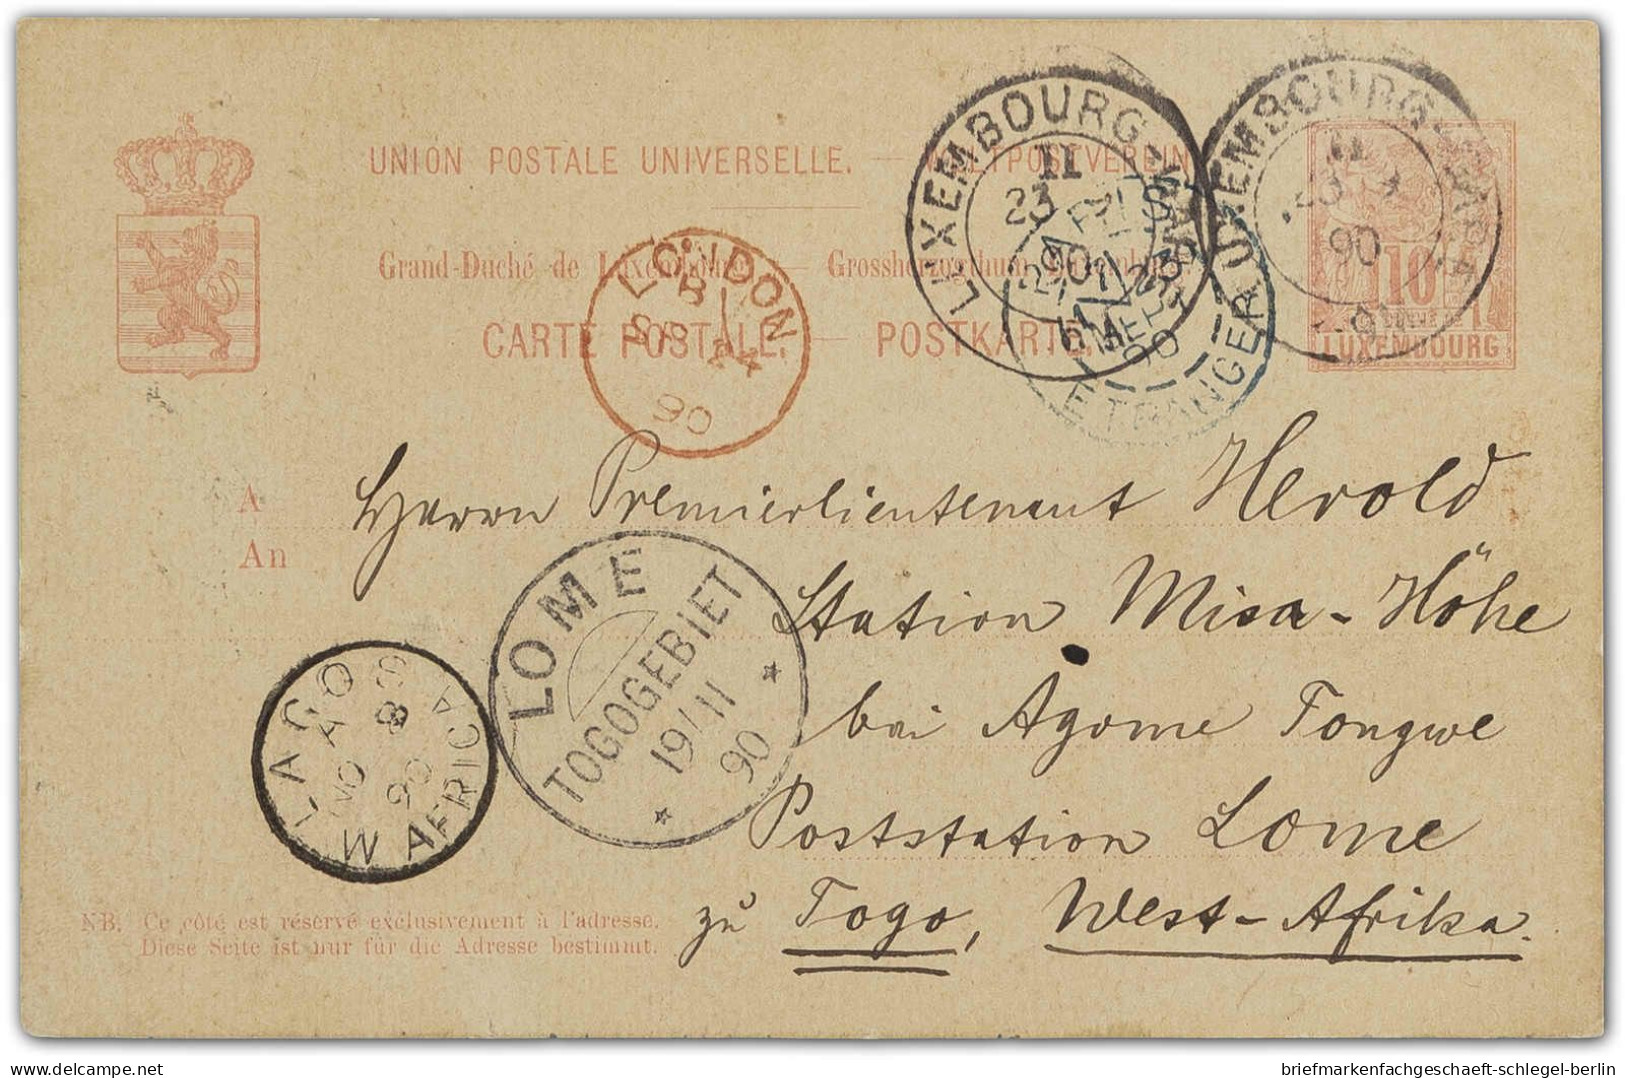 UNION POSTALE UNIVERSELLE. — WELTPOSTVEREIN
Grand-Duché de Luxembourg — Grossherzogthum Luxemburg
CARTE POSTALE. — POSTKARTE.
LUXEMBOURG-GARE
11
23
90
LUXEMBOURG-GARE
11
23 9
90
10
LUXEMBOURG
ETRANGER
90
LONDON
B
SP 24
90
A
An
Herrn Premierlieutenant Herold
Station Misa-Höhe
bei Agome Tongwe
Poststation Lome
zu Togo, West-Afrika.
LOME
TOGOGEBIET
19/11
90
LAGOS
W AFRICA
A
NO 8
90
NB. Ce côté est réservé exclusivement à l'adresse.
Diese Seite ist nur für die Adresse bestimmt.
delcampe.net
briefmarkenfachgeschaeft-schlegel-berlin